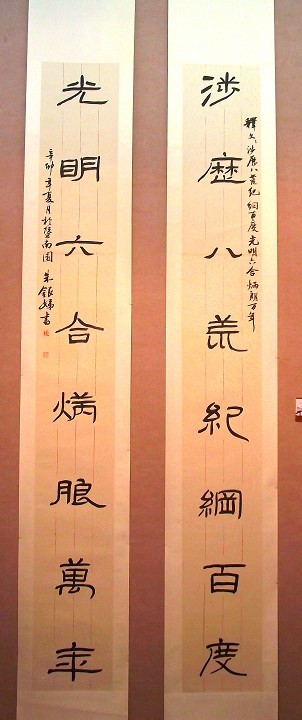 涉歷八荒紀綱百度
釋文：涉歷八荒紀綱百度光明六合炳朗万年
光明六合炳朗萬年
辛卯年夏月於暨南園 朱銀娣書